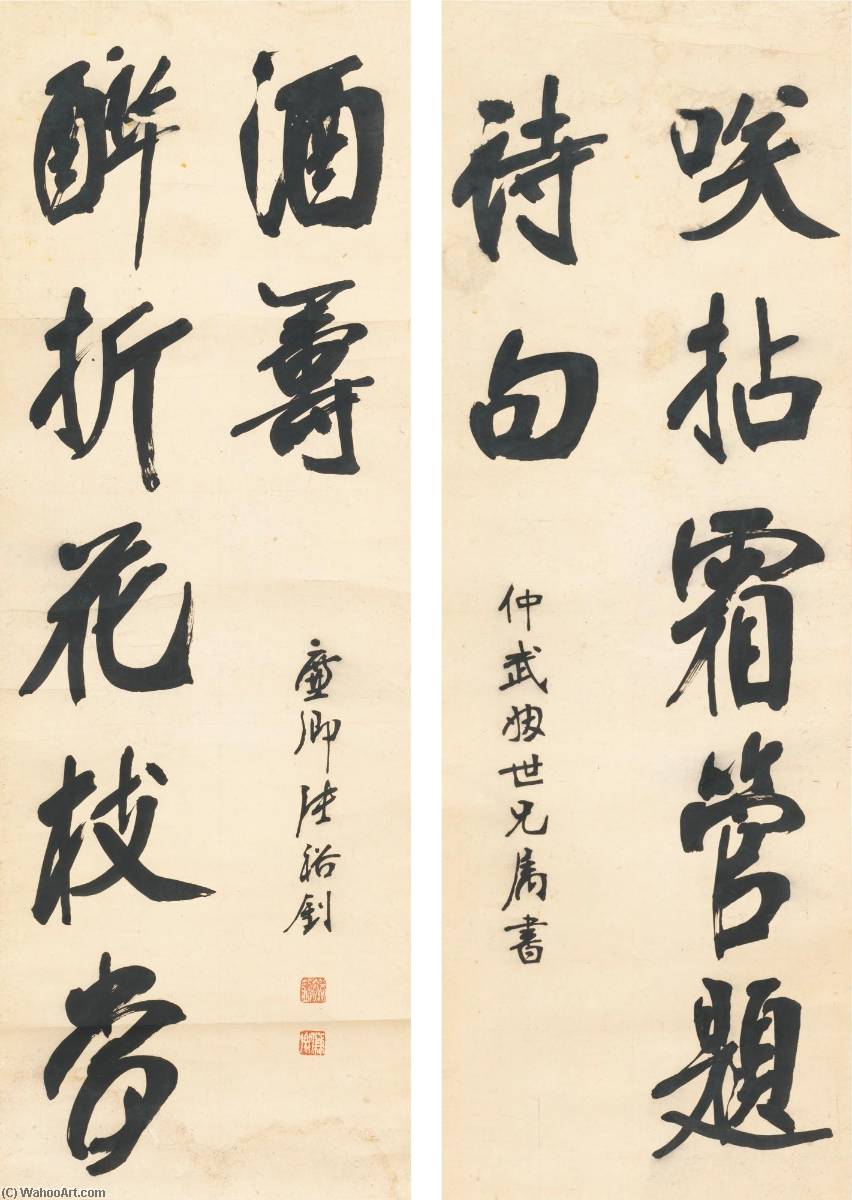 咲拈霜管題
詩句
仲武姻世兄属書
醉折花枝當
酒籌
廉卿張裕釗
(C) WahooArt.com